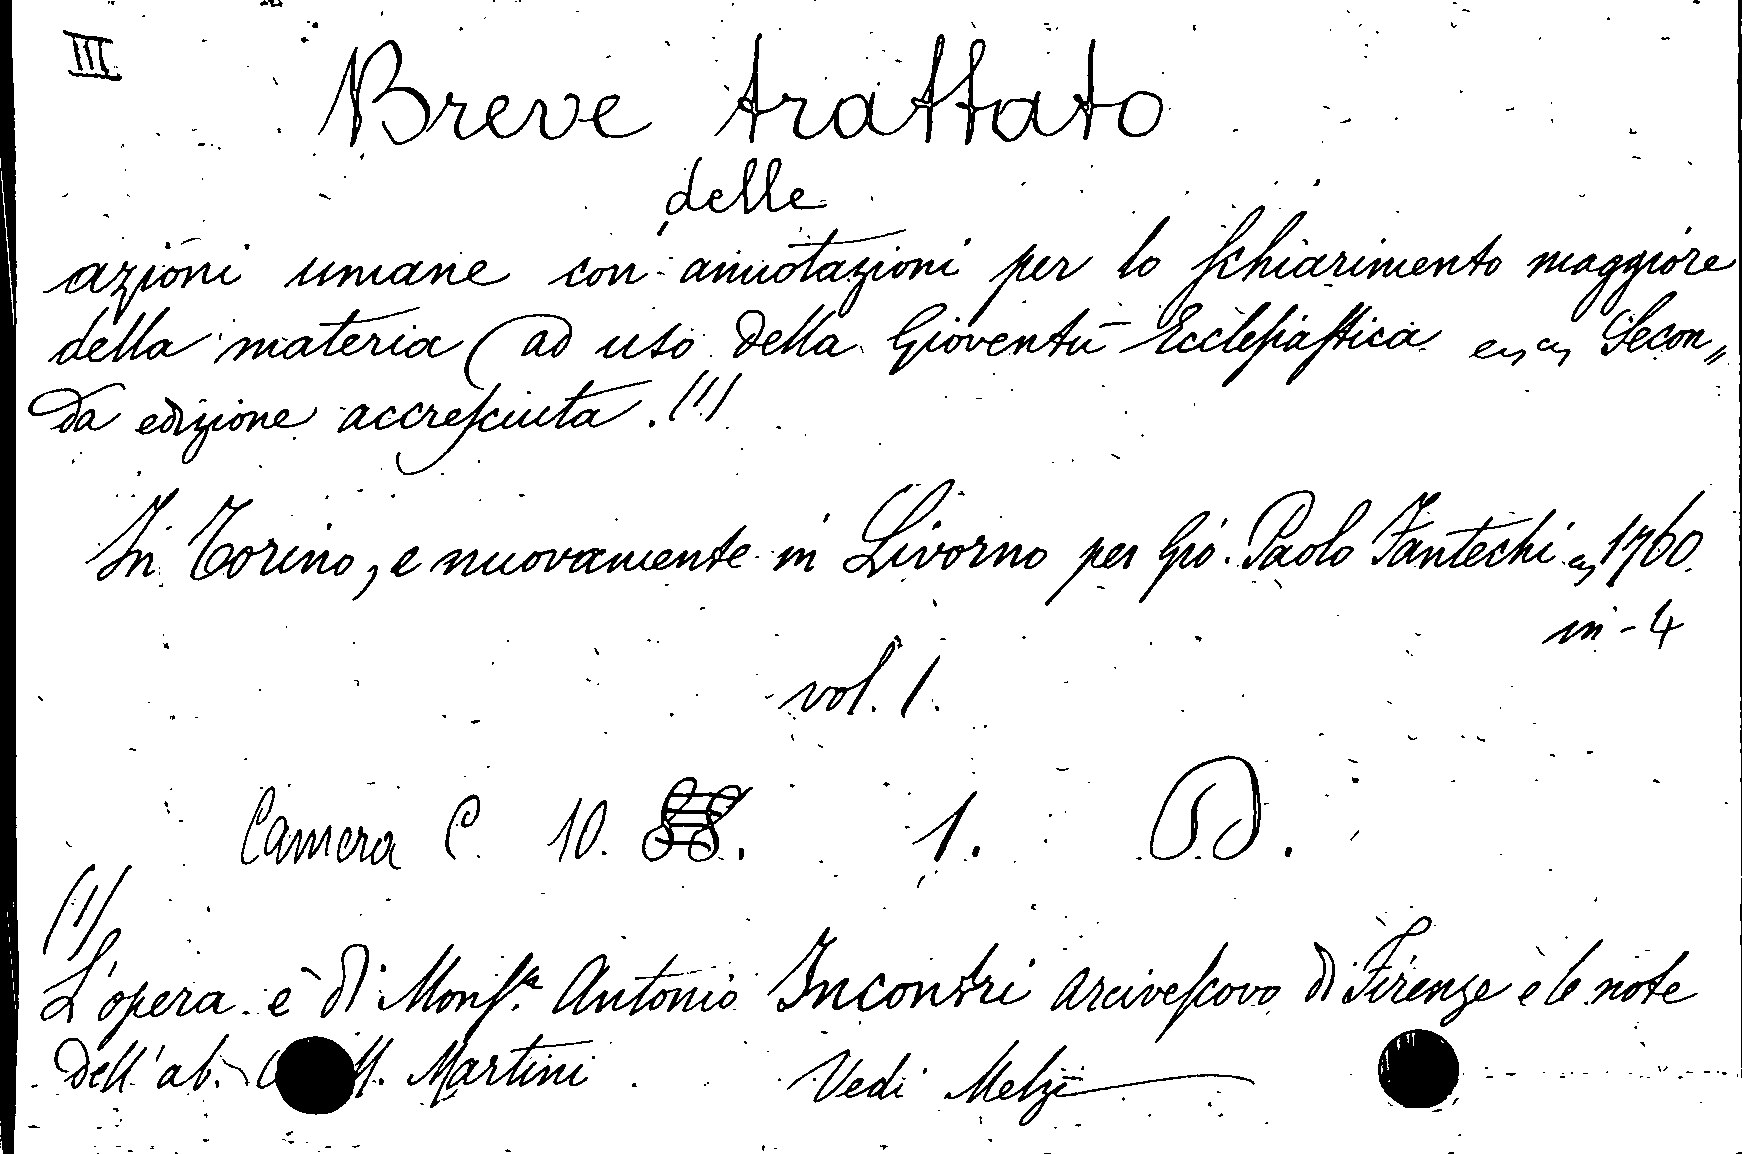 III
Breve trattato
delle
azioni umane con annotazioni per lo schiarimento maggiore
della materia ad uso della Gioventù Ecclesiastica Secon„
da edizione accresciuta. (1)
In Torino, e nuovamente in Livorno per Gio. Paolo Fantechi 1760.
in-4
vol. 1.
Camera C. 10. 1.
(1)
L'opera è di Monsr. Antonio Incontri arcivescovo di Firenze e le note
dell'ab. M. Martini Vedi Melzi